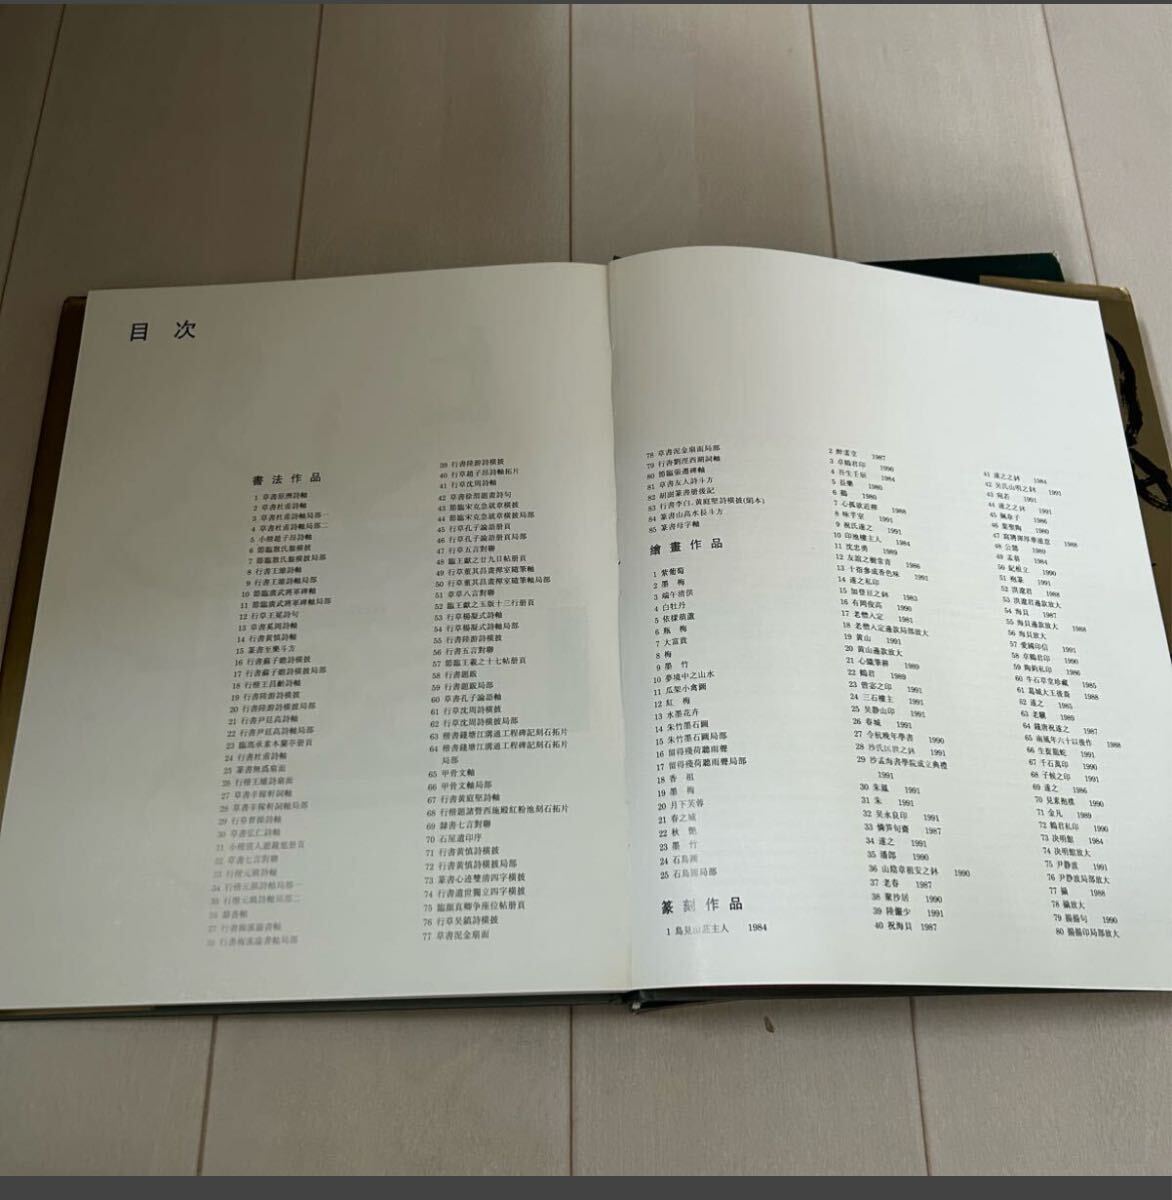 目次
書法作品
1 草書原濟詩軸
2 草書杜甫詩軸
3 草書杜甫詩軸局部一
4 草書杜甫詩軸局部二
5 小楷趙子昂詩軸
6 節臨散氏盤橫披
7 節臨散氏盤橫披局部
8 行書王維詩軸
9 行書王維詩軸局部
10 節臨廣武將軍碑軸
11 節臨廣武將軍碑軸局部
12 行草王冕詩句
13 草書奚岡詩軸
14 行書黃慎詩軸
15 篆書至樂斗方
16 行書蘇子瞻詩橫披
17 行書蘇子瞻詩橫披局部
18 行楷王昌齡詩軸
19 行書陸游詩橫披
20 行書陸游詩橫披局部
21 行書尹廷高詩軸
22 行書尹廷高詩軸局部
23 臨馮承素本蘭亭册頁
24 行書杜甫詩軸
25 篆書無爲扇面
26 行楷王維詩扇面
27 草書辛稼軒詞軸
28 草書辛稼軒詞軸局部
29 行草曹操詩軸
30 草書弘仁詩軸
32 草書七言對聯
33 行楷元稹詩軸
34 行楷元稹詩軸局部一
35 行楷元稹詩軸局部二
39 行書陸游詩橫披
40 行草趙子昂詩軸拓片
41 行草沈周詩軸
42 草書徐渭題畫詩句
43 節臨宋克急就章橫披
44 節臨宋克急就章橫披局部
45 行草孔子論語册頁
46 行草孔子論語册頁局部
47 行草五言對聯
48 臨王獻之廿九日帖册頁
49 行草董其昌畫禪室隨筆軸
50 行草董其昌畫禪室隨筆軸局部
51 章草八言對聯
52 臨王獻之玉版十三行册頁
53 行草楊凝式詩軸
54 行草楊凝式詩軸局部
55 行書陸游詩軸
56 行書五言對聯
57 節臨王羲之十七帖册頁
58 行書題跋
59 行書題跋局部
60 草書孔子論語軸
61 行草沈周詩橫披
62 行草沈周詩橫披局部
63 楷書錢塘江溝通工程碑記刻石拓片
64 楷書錢塘江溝通工程碑記刻石拓片
局部
65 甲骨文軸
66 甲骨文軸局部
67 行書黃庭堅詩軸
68 行楷題諸暨西施殿紅粉池刻石拓片
69 隸書七言對聯
70 石屋遺印序
71 行書黃慎詩橫披
72 行書黃慎詩橫披局部
73 篆書心迹雙清四字橫披
74 行書遺世獨立四字橫披
75 臨顏真卿争座位帖册頁
76 行草吴鎮詩橫披
77 草書泥金扇面
78 草書泥金扇面局部
79 行書劉涇西湖詞軸
80 節臨張遷碑軸
81 草書友人詩斗方
82 胡澍篆書册後記
83 行書李白、黃庭堅詩橫披(絹本)
84 篆書山高水長斗方
85 篆書母字軸
繪畫作品
1 紫葡萄
2 墨梅
3 端午清供
4 白牡丹
5 依樣葫蘆
6 瓶梅
7 大富貴
8 梅
9 墨竹
10 夢境中之山水
11 瓜架小禽圖
12 紅梅
13 水墨花卉
14 朱竹墨石圖
15 朱竹墨石圖局部
16 留得殘荷聽雨聲
17 留得殘荷聽雨聲局部
18 香祖
19 墨梅
20 月下芙蓉
21 春之城
22 秋艷
23 墨竹
24 石鳥圖
25 石鳥圖局部
篆刻作品
1 鳥見山莊主人 1984
2 醉霊堂 1987
3 卓鶴君印 1990
4 吾生壬辰 1984
5 長樂 1980
6 鵝 1980
7 心孤欲近禪 1988
8 味芋室 1991
9 祝氏遂之 1991
10 印池樓主人 1984
11 沈忠勇 1989
12 友誼之樹常青 1986
13 十指參成香色味 1991
14 遂之私印
15 加登亘之鉢 1983
16 有岡俊高 1990
17 老憊人定 1981
18 老憊人定邊款局部放大
19 黃山 1991
20 黃山邊款放大
21 心織筆耕 1989
22 鶴君 1989
23 曾宓之印 1991
24 三石樓主 1991
25 吴静山印 1991
26 春城 1991
27 令杭晚年學書 1990
28 沙氏臣洪之鉢 1991
29 沙孟海書學院成立典禮
1991
30 朱蘊 1991
31 朱 1991
32 吴永良印 1991
33 憐笋句齋 1987
34 遂之 1991
35 潘郎 1990
36 山陰章祖安之鉢 1990
37 老春 1987
38 聚沙居 1990
39 陸儼少 1991
40 祝海貝 1987
41 遂之之鉢 1984
42 吴氏山明之鉢 1991
43 宛若 1991
44 遂之之鉢 1991
45 佩身子 1986
46 葉聖陶 1980
48 公鵠 1989
49 孟翁 1984
50 紀根立 1990
51 袍篆 1991
52 洪遼君 1988
53 洪遼君邊款放大
54 海貝 1987
55 海貝邊款放大 1988
56 海貝放大
57 愛國印信 1991
58 卓鶴君印 1990
59 陶鈞私印 1986
60 牛石草堂珍藏 1985
61 葛城大王後裔 1988
62 遂之 1985
63 老驥 1989
64 錢唐祝遂之 1987
65 南風年六十以後作 1988
66 生掘龍蛇 1991
67 千石萬印 1990
68 子候之印 1991
69 遂之 1986
70 見素抱樸 1990
71 金凡 1989
72 鶴君私印 1990
73 決明館 1984
74 決明館放大
75 尹静波 1991
76 尹静波局部放大
77 攝 1988
78 攝放大
79 揚揚句 1990
80 揚揚印局部放大